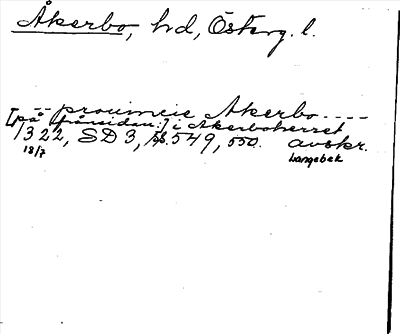 Åkerbo, hd, Österg. l.
-- prouincie Akerbo ----
[på frånsidan:] i Akerboherret
1322, SD 3, s. 549, 550. avskr.
18/7 Langebek